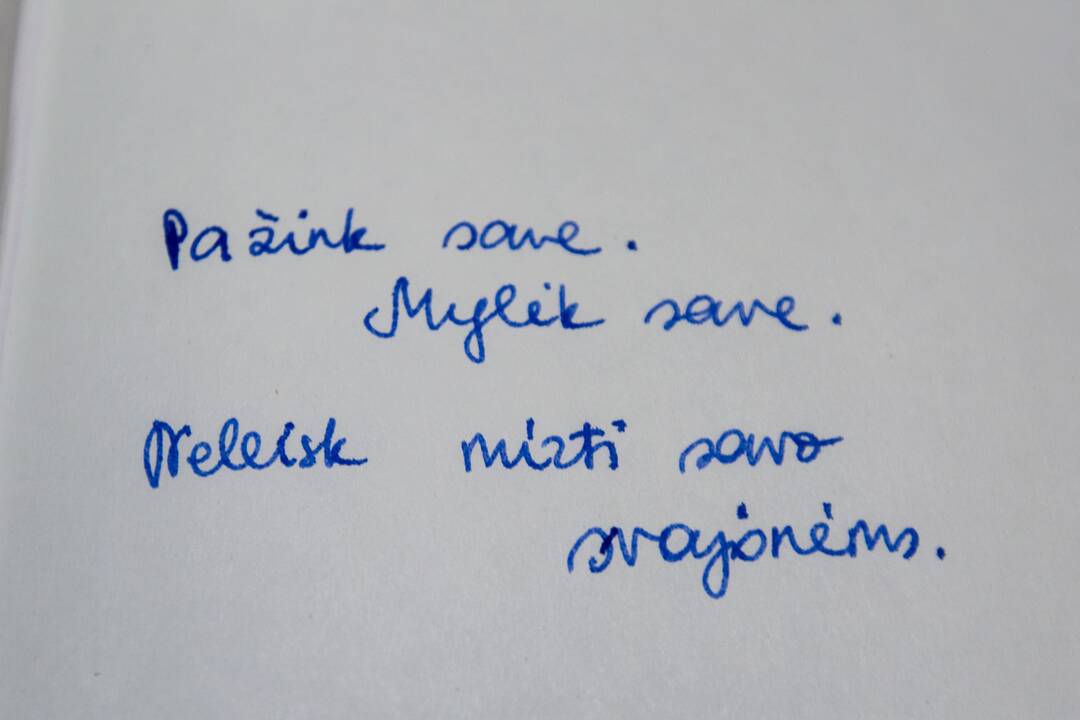 Pažink save.
Mylėk save.
Neleisk mirti savo
svajonėms.